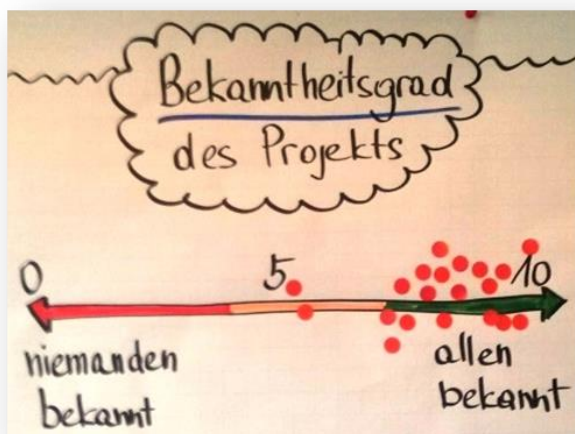 Bekanntheitsgrad
des Projekts
0
5
10
niemanden
bekannt
allen
bekannt